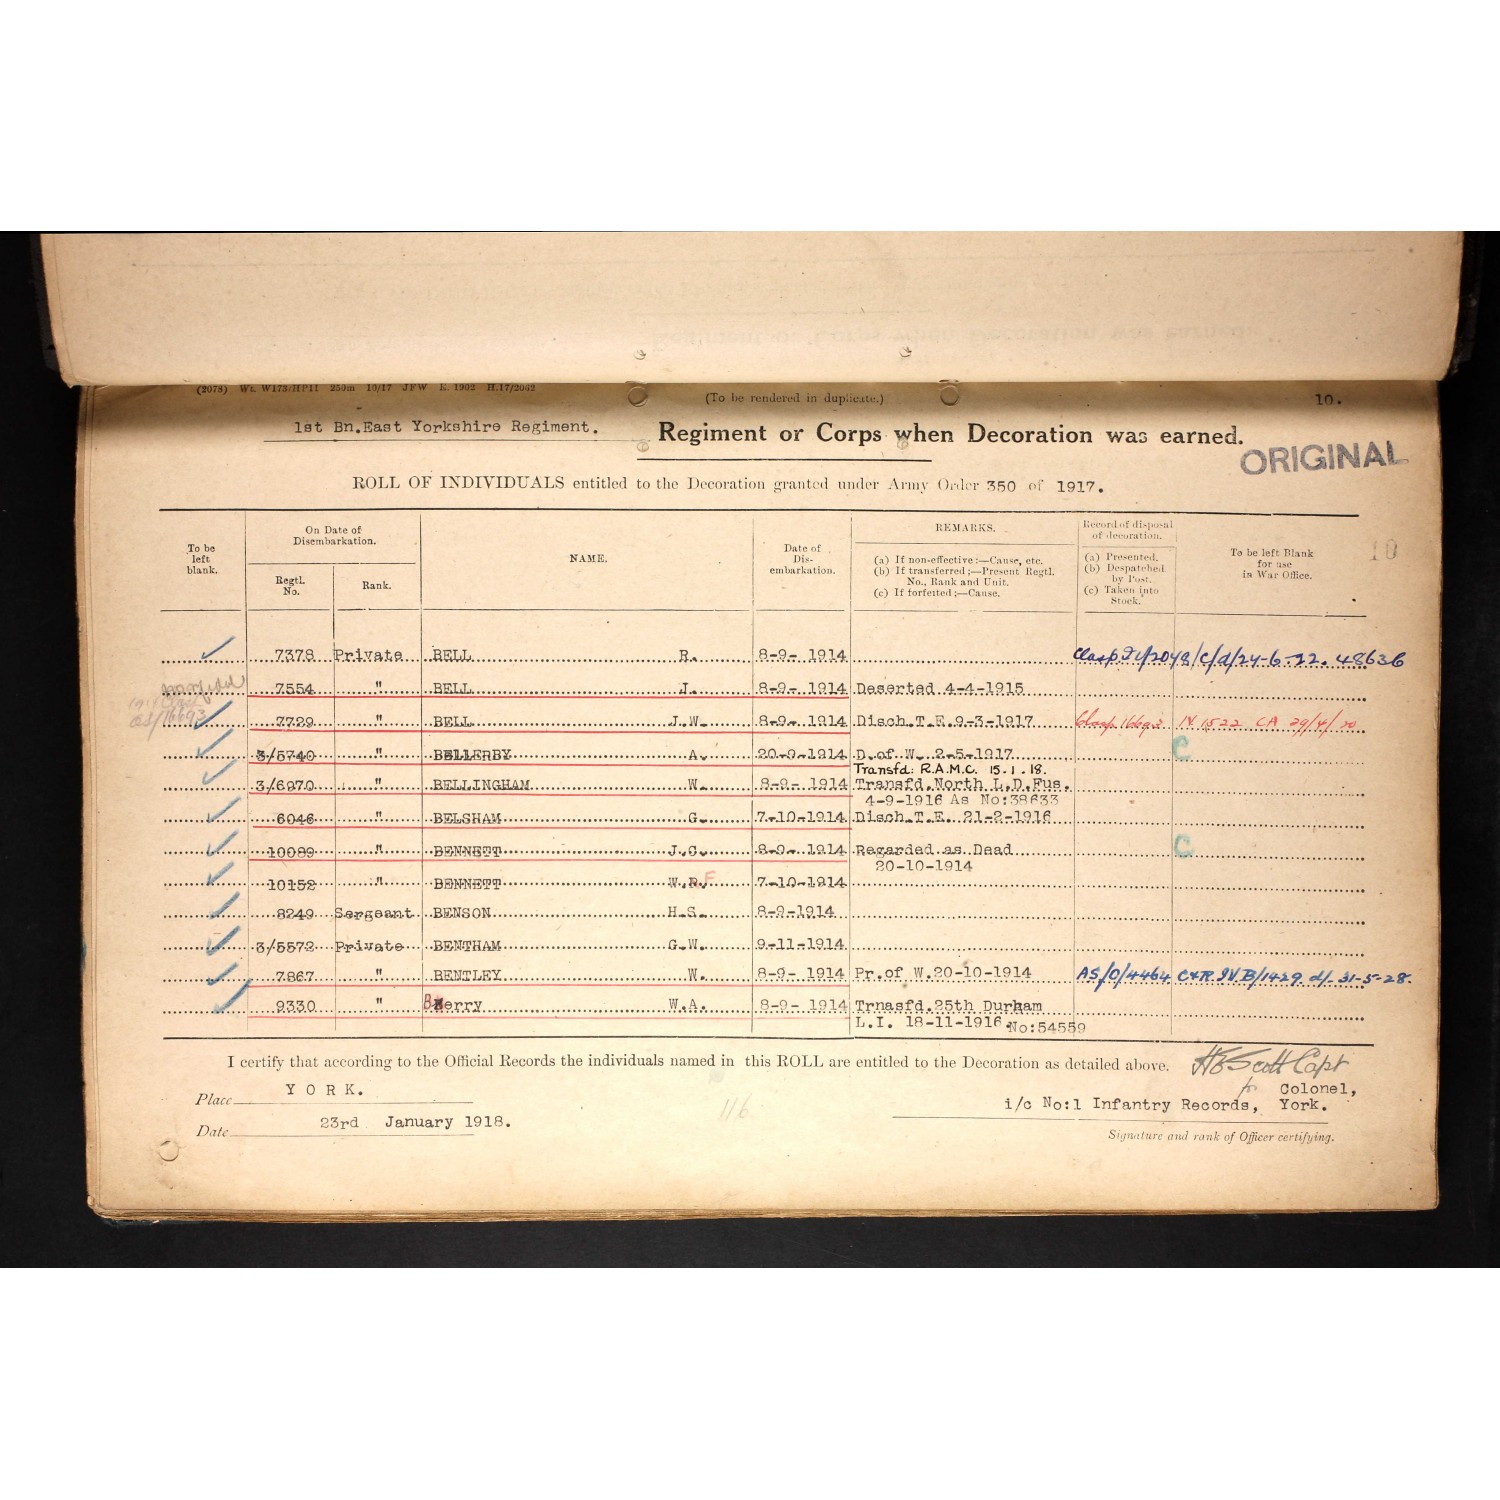 (2078) Wt. W173/HP11 250m 10/17 JFW E. 1902 H.17/2062
(To be rendered in duplicate.)
10.
1st Bn.East Yorkshire Regiment. Regiment or Corps when Decoration was earned.
ORIGINAL
ROLL OF INDIVIDUALS entitled to the Decoration granted under Army Order 350 of 1917.
To be left blank.
On Date of Disembarkation.
Regtl. No.
Rank.
NAME.
Date of Dis-embarkation.
REMARKS.
(a) If non-effective:—Cause, etc.
(b) If transferred;—Present Regtl. No., Rank and Unit.
(c) If forfeited;—Cause.
Record of disposal of decoration.
(a) Presented.
(b) Despatched by Post.
(c) Taken into Stock.
To be left Blank for use in War Office.
10
7378 Private BELL R. 8-9- 1914 Clasp 48636
7554 " BELL J. 8-9- 1914 Deserted 4-4-1915
7729 " BELL J.W. 8-9- 1914 Disch.T.E.9-3-1917 Clasp 16693 IV 1522 CA 29/4/20
3/5740 " BELLERBY A. 20-9-1914 D.of W. 2-5-1917 C
Transfd: R.A.M.C. 15.1.18.
3/6970 " BELLINGHAM W. 8-9- 1914 Transfd.North L.D.Fus.
4-9-1916 As No:38633
6046 " BELSHAM G. 7-10-1914 Disch.T.E. 21-2-1916
10089 " BENNETT J.C. 8-9- 1914 Regarded as Dead C
20-10-1914
10152 " BENNETT W.R. F 7-10-1914
8249 Sergeant BENSON H.S. 8-9-1914
3/5572 Private BENTHAM G.W. 9-11-1914
7867 " BENTLEY W. 8-9- 1914 Pr.of W.20-10-1914 AS/0/4464 C&R IV.B/1429 d/- 31-5-28.
9330 " Berry W.A. 8-9- 1914 Trnasfd.25th Durham
L.I. 18-11-1916.No:54559
I certify that according to the Official Records the individuals named in this ROLL are entitled to the Decoration as detailed above.
HE Scott Capt
for Colonel,
Place YORK.
i/c No:1 Infantry Records, York.
116
Date 23rd January 1918.
Signature and rank of Officer certifying.